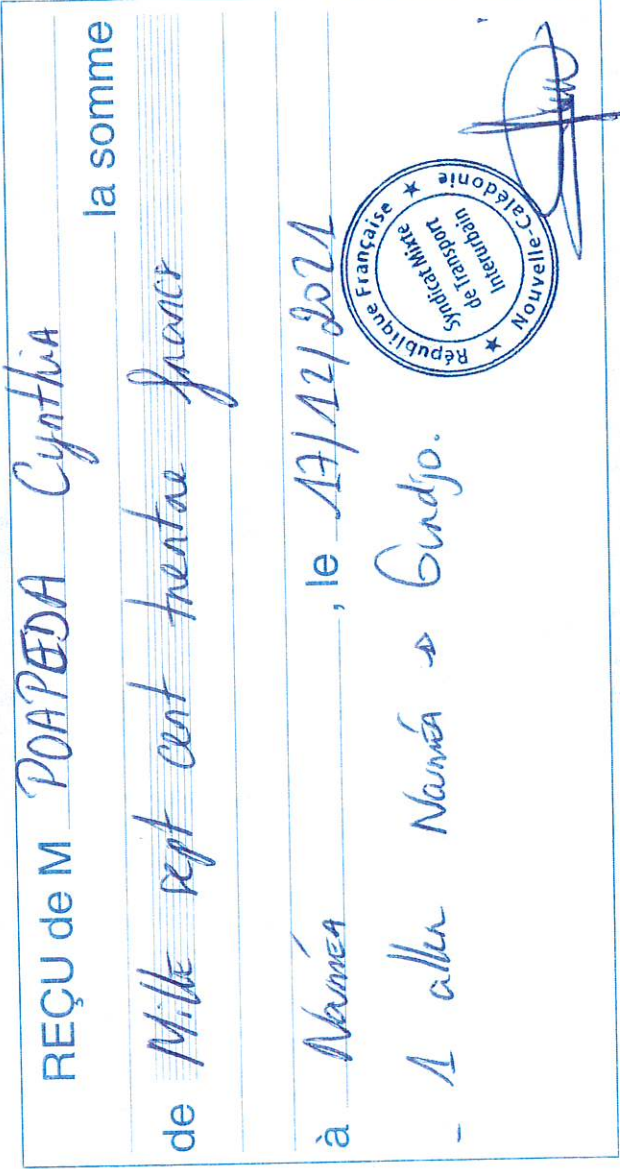 REÇU de M POAPEDA Cynthia
la somme
de Mille sept cent trentre francs
à Nouméa, le 17/12/2021
- 1 aller Nouméa → Gondjo.
République Française ★ Nouvelle-Calédonie ★
Syndicat Mixte
de Transport
Interurbain